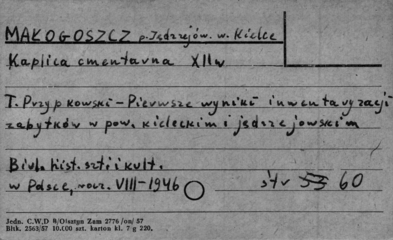 MAŁOGOSZCZ p. Jędrzejów. w. Kielce
Kaplica cmentarna XII w
T. Przypkowski – Pierwsze wyniki inwentaryzacji
zabytków w pow. kieleckim i jędrzejowskim
Biul. hist. szt. i kult.
w Polsce, rocz. VIII–1946 str 53 60
Jedn. C.W.D 8/Olsztyn Zam 2776/on/57
Bltk. 2563/57 10.000 szt. karton kl. 7 g 220.